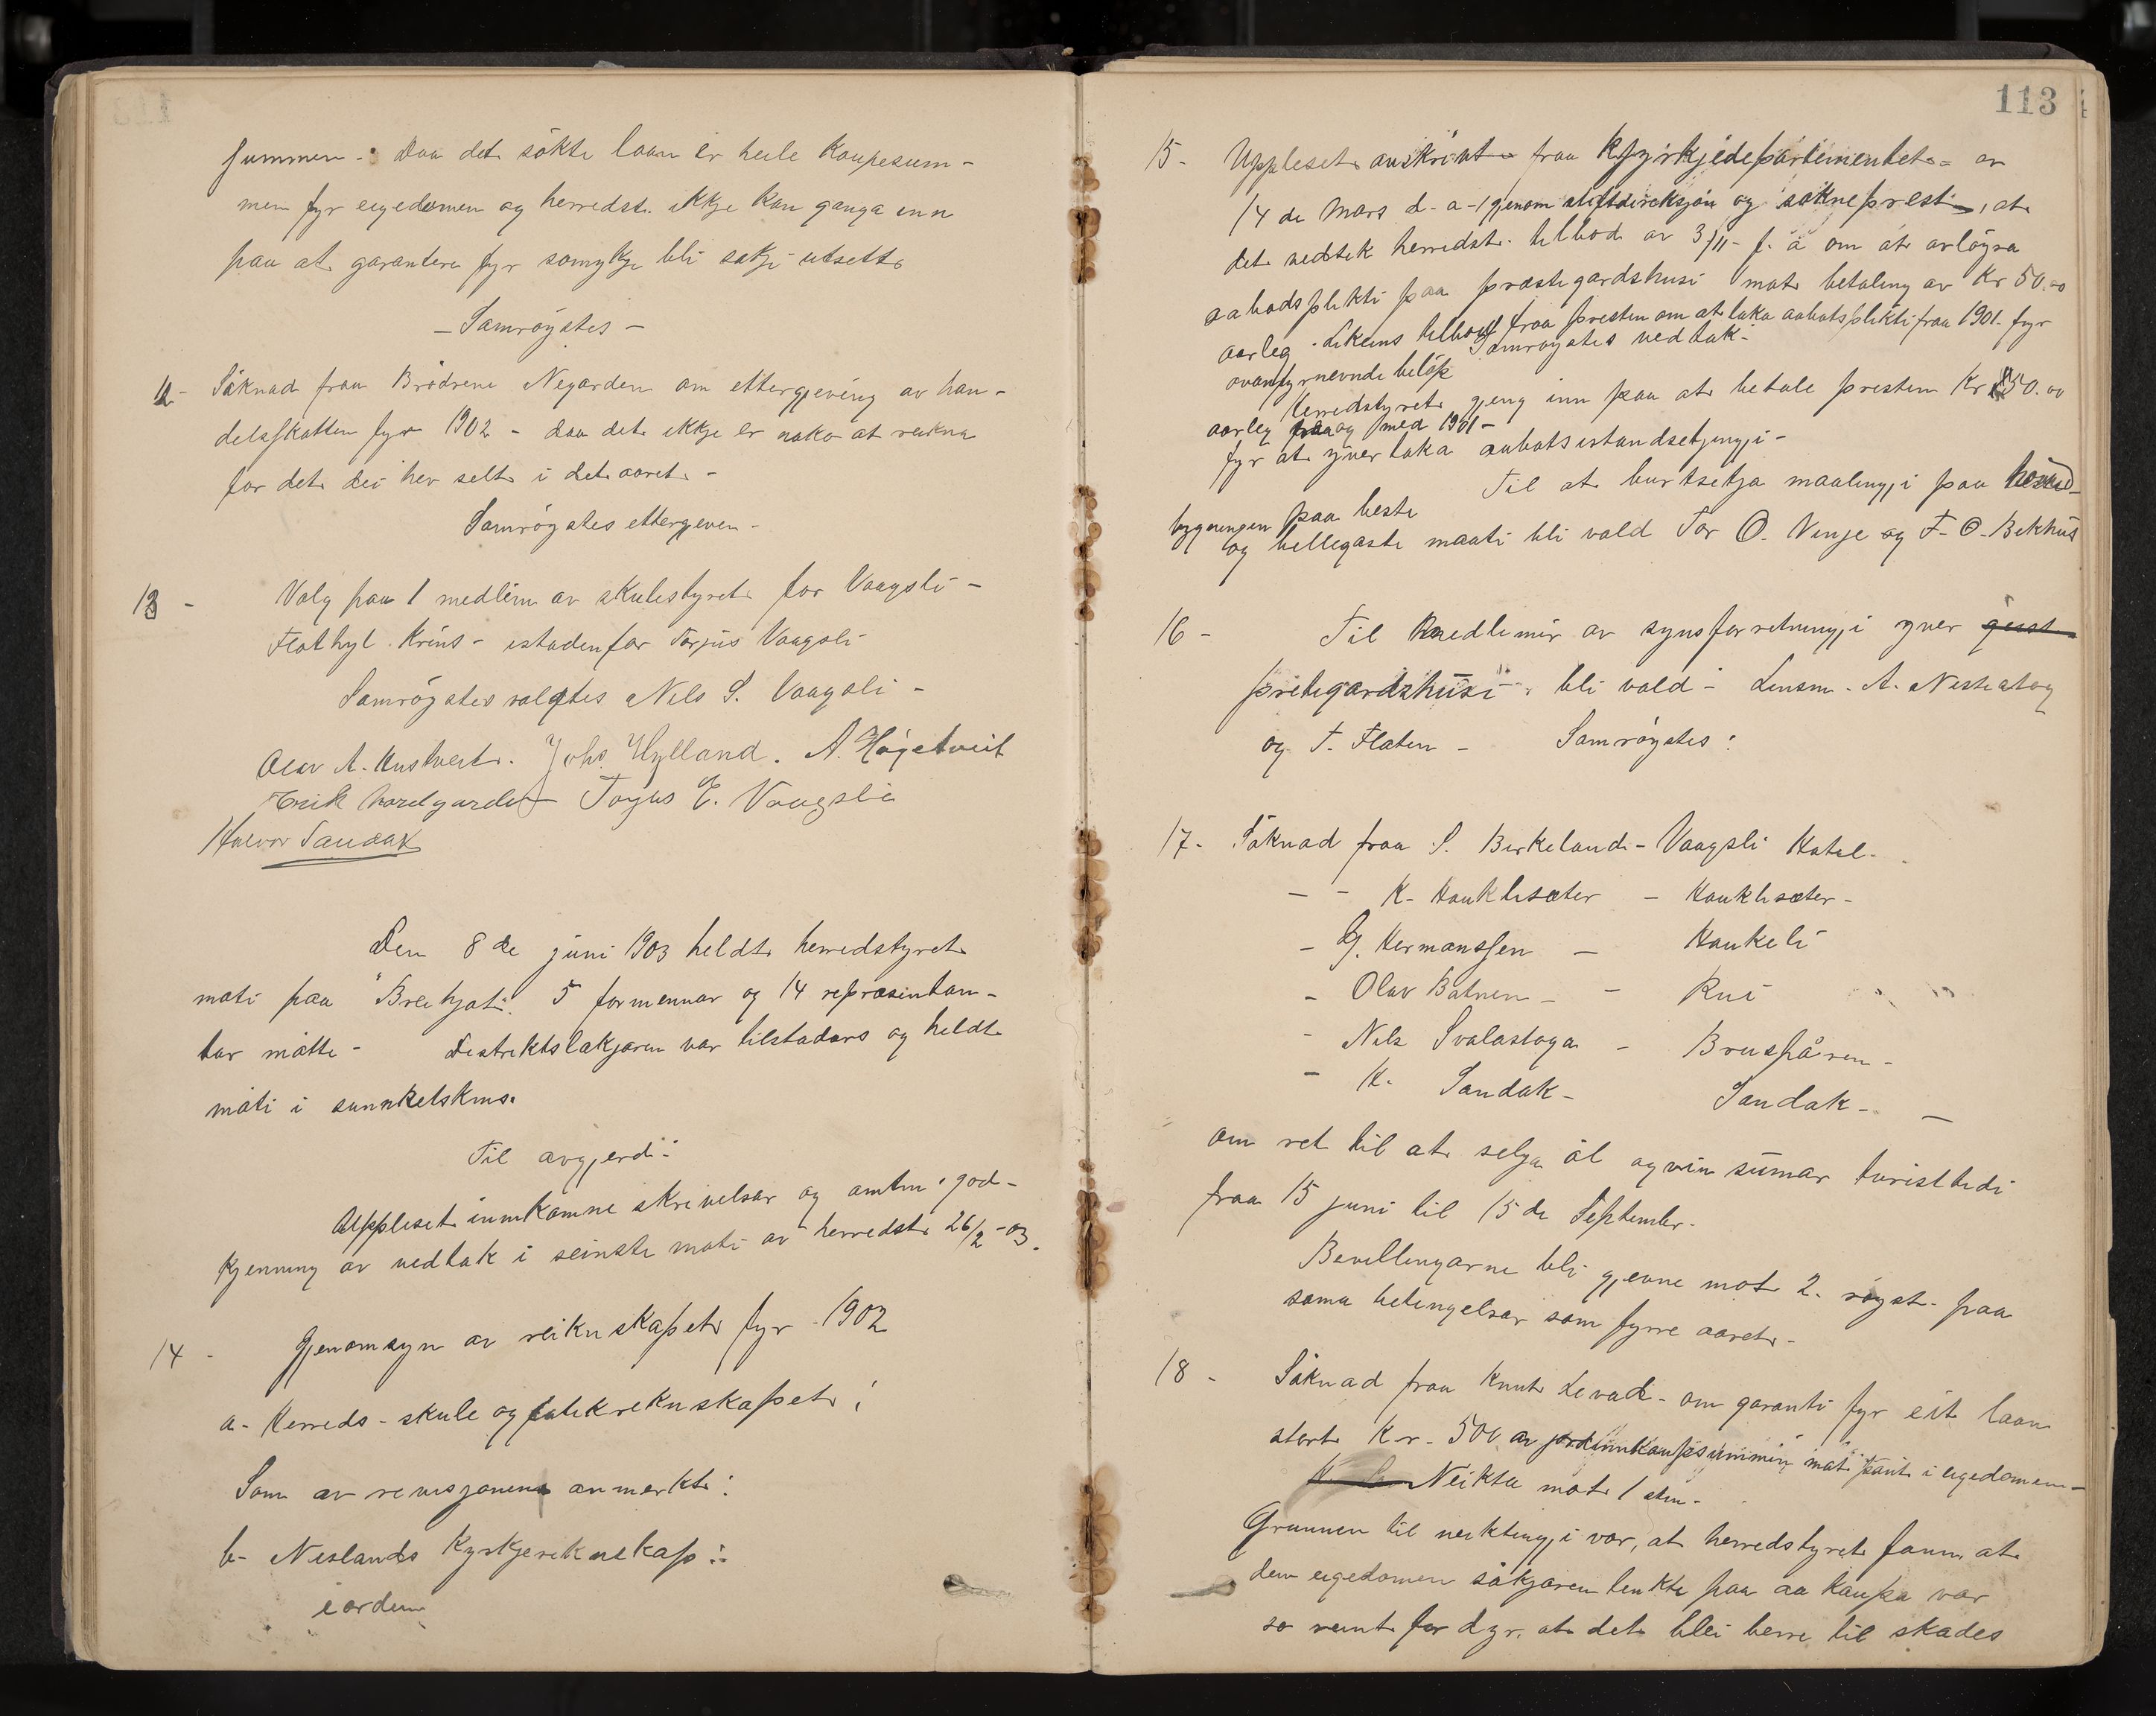 summen. Daa det sökte laan er heile kaupesum-
men fyr eigedomen og herredst. ikkje kan ganga inn
paa at garantera fyr somykje bli sakji utsett.
- Samröystes -
12 - Söknad fraa Brödrene Negarden om ettergjeving av han-
delsskatten fyr 1902 - daa det ikkje er noko at reikna
for det dei hev selt i det aaret. -
Samröystes ettergjeven -
13 - Valg paa 1 medlem av skulestyret for Vaagsli -
Flothyl Krins - istadenfor Torjus Vaagsli
Samröystes valgtes Nils S. Vaagsli -
Olav A. Hustveit. Johs. Hylland. A. Högetveit
Erik Hardgarden Torjus E. Vaagslie
Halvor Sandok
Den 8de juni 1903 heldt herredstyret
möti paa "Breitjøti". 5 formennar og 14 repræsentan-
tar mötte - Distriktslækjaren var tilstadars og heldt
möti i sunnhetskms.
Til avgjerd:
Uppleset innkomne skrivelsar og amtm. god-
kjenning av vedtak i seinste möti av herredst. 26/2-03.
14 - Gjenomsyn av reiknskapet fyr 1902
a- Herreds- skule og fatikreknskapet;
Som av revisjonen anmerkt:
b- Neslands kyrkjereknskap:
i orden
113
15- Uppleset fraa kyrkjedepartementet av
14de Mars d.a. gjenom stiftdireksjon og sokneprest, at
det vedtek herredst. tilbod av 3/11 f.å om at avlöysa
aabodsplikti paa prestegardshusi mot betaling av Kr 50.00
aarleg. Likeins tilbod fraa presten om at taka aabotsplikti fraa 1901 fyr
ovanfyrnevnde belöp Samröystes vedtak:
Herredstyret gjeng inn paa at betale presten Kr 50.00
aarleg fraa og med 1901 -
fyr at yvertaka aabotsistandsetjingji -
Til at burtsetja maalingji paa herreds-
bygningen paa beste
og billegaste maati bli vald Tor O. Vinje og T. O. Bekhus
16 - Til medlemir av synsforretningji yver
pretegardshusi bli vald - Lensm. A. Nestestog
og T. Flaten - Samröystes:
17. Söknad fraa S. Birkeland - Vaagsli Hotel.
- - K. Haukliseter - Haukliseter -
- G. Hermanssen - Haukeli
- Olav Botnen - - Rui
- Nils Svalastoga - Bruspåren -
- H. Sandok - Sandok -
om ret til at selja öl og vin sumar turisttidi
fraa 15 juni til 15de September.
Bevillingarne bli gjevne mot 2. röyst. paa
soma betingelsar som fyrre aaret -
18 - Söknad fraa Knut Levad - om garanti fyr eit laan
stort Kr. 500 av jordinnkaupssummin mot pant i eigedomen -
Neikta mot 1 stm.
Grunnen til neiktingji var, at herredstyret fann at
den eigedomen sökjaren tenkte paa aa kaupa var
so reint for dyr, at det blei berre til skades